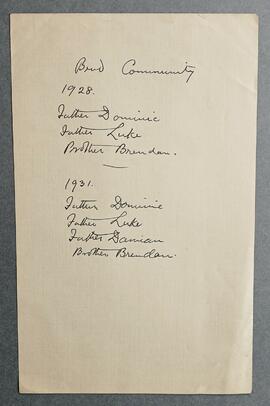 Bend Community
1928.
Father Dominic
Father Luke
Brother Brendan.
1931.
Father Dominic
Father Luke
Father Damian
Brother Brendan.